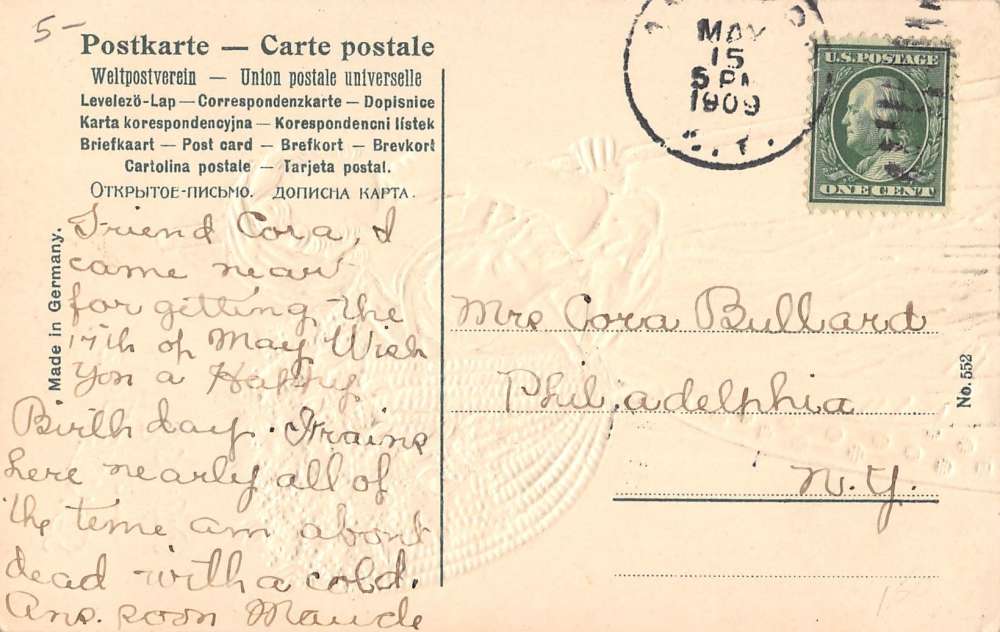 5-
Postkarte — Carte postale
Weltpostverein — Union postale universelle
Levelező-Lap — Correspondenzkarte — Dopisnice
Karta korespondencyjna — Korespondencni lístek
Briefkaart — Post card — Brefkort — Brevkort
Cartolina postale — Tarjeta postal.
Открытое-письмо. Дописна карта.
Made in Germany.
Friend Cora, I
came near
for getting the
17th of May Wish
You a Happy
Birth day. It rains
here nearly all of
the teme am about
dead with a cold.
Ans. soon Maude
MAY
15
5 PM
1909
U.S. POSTAGE
ONE CENT
Mrs Cora Bullard
Philadelphia
N.Y.
No. 552